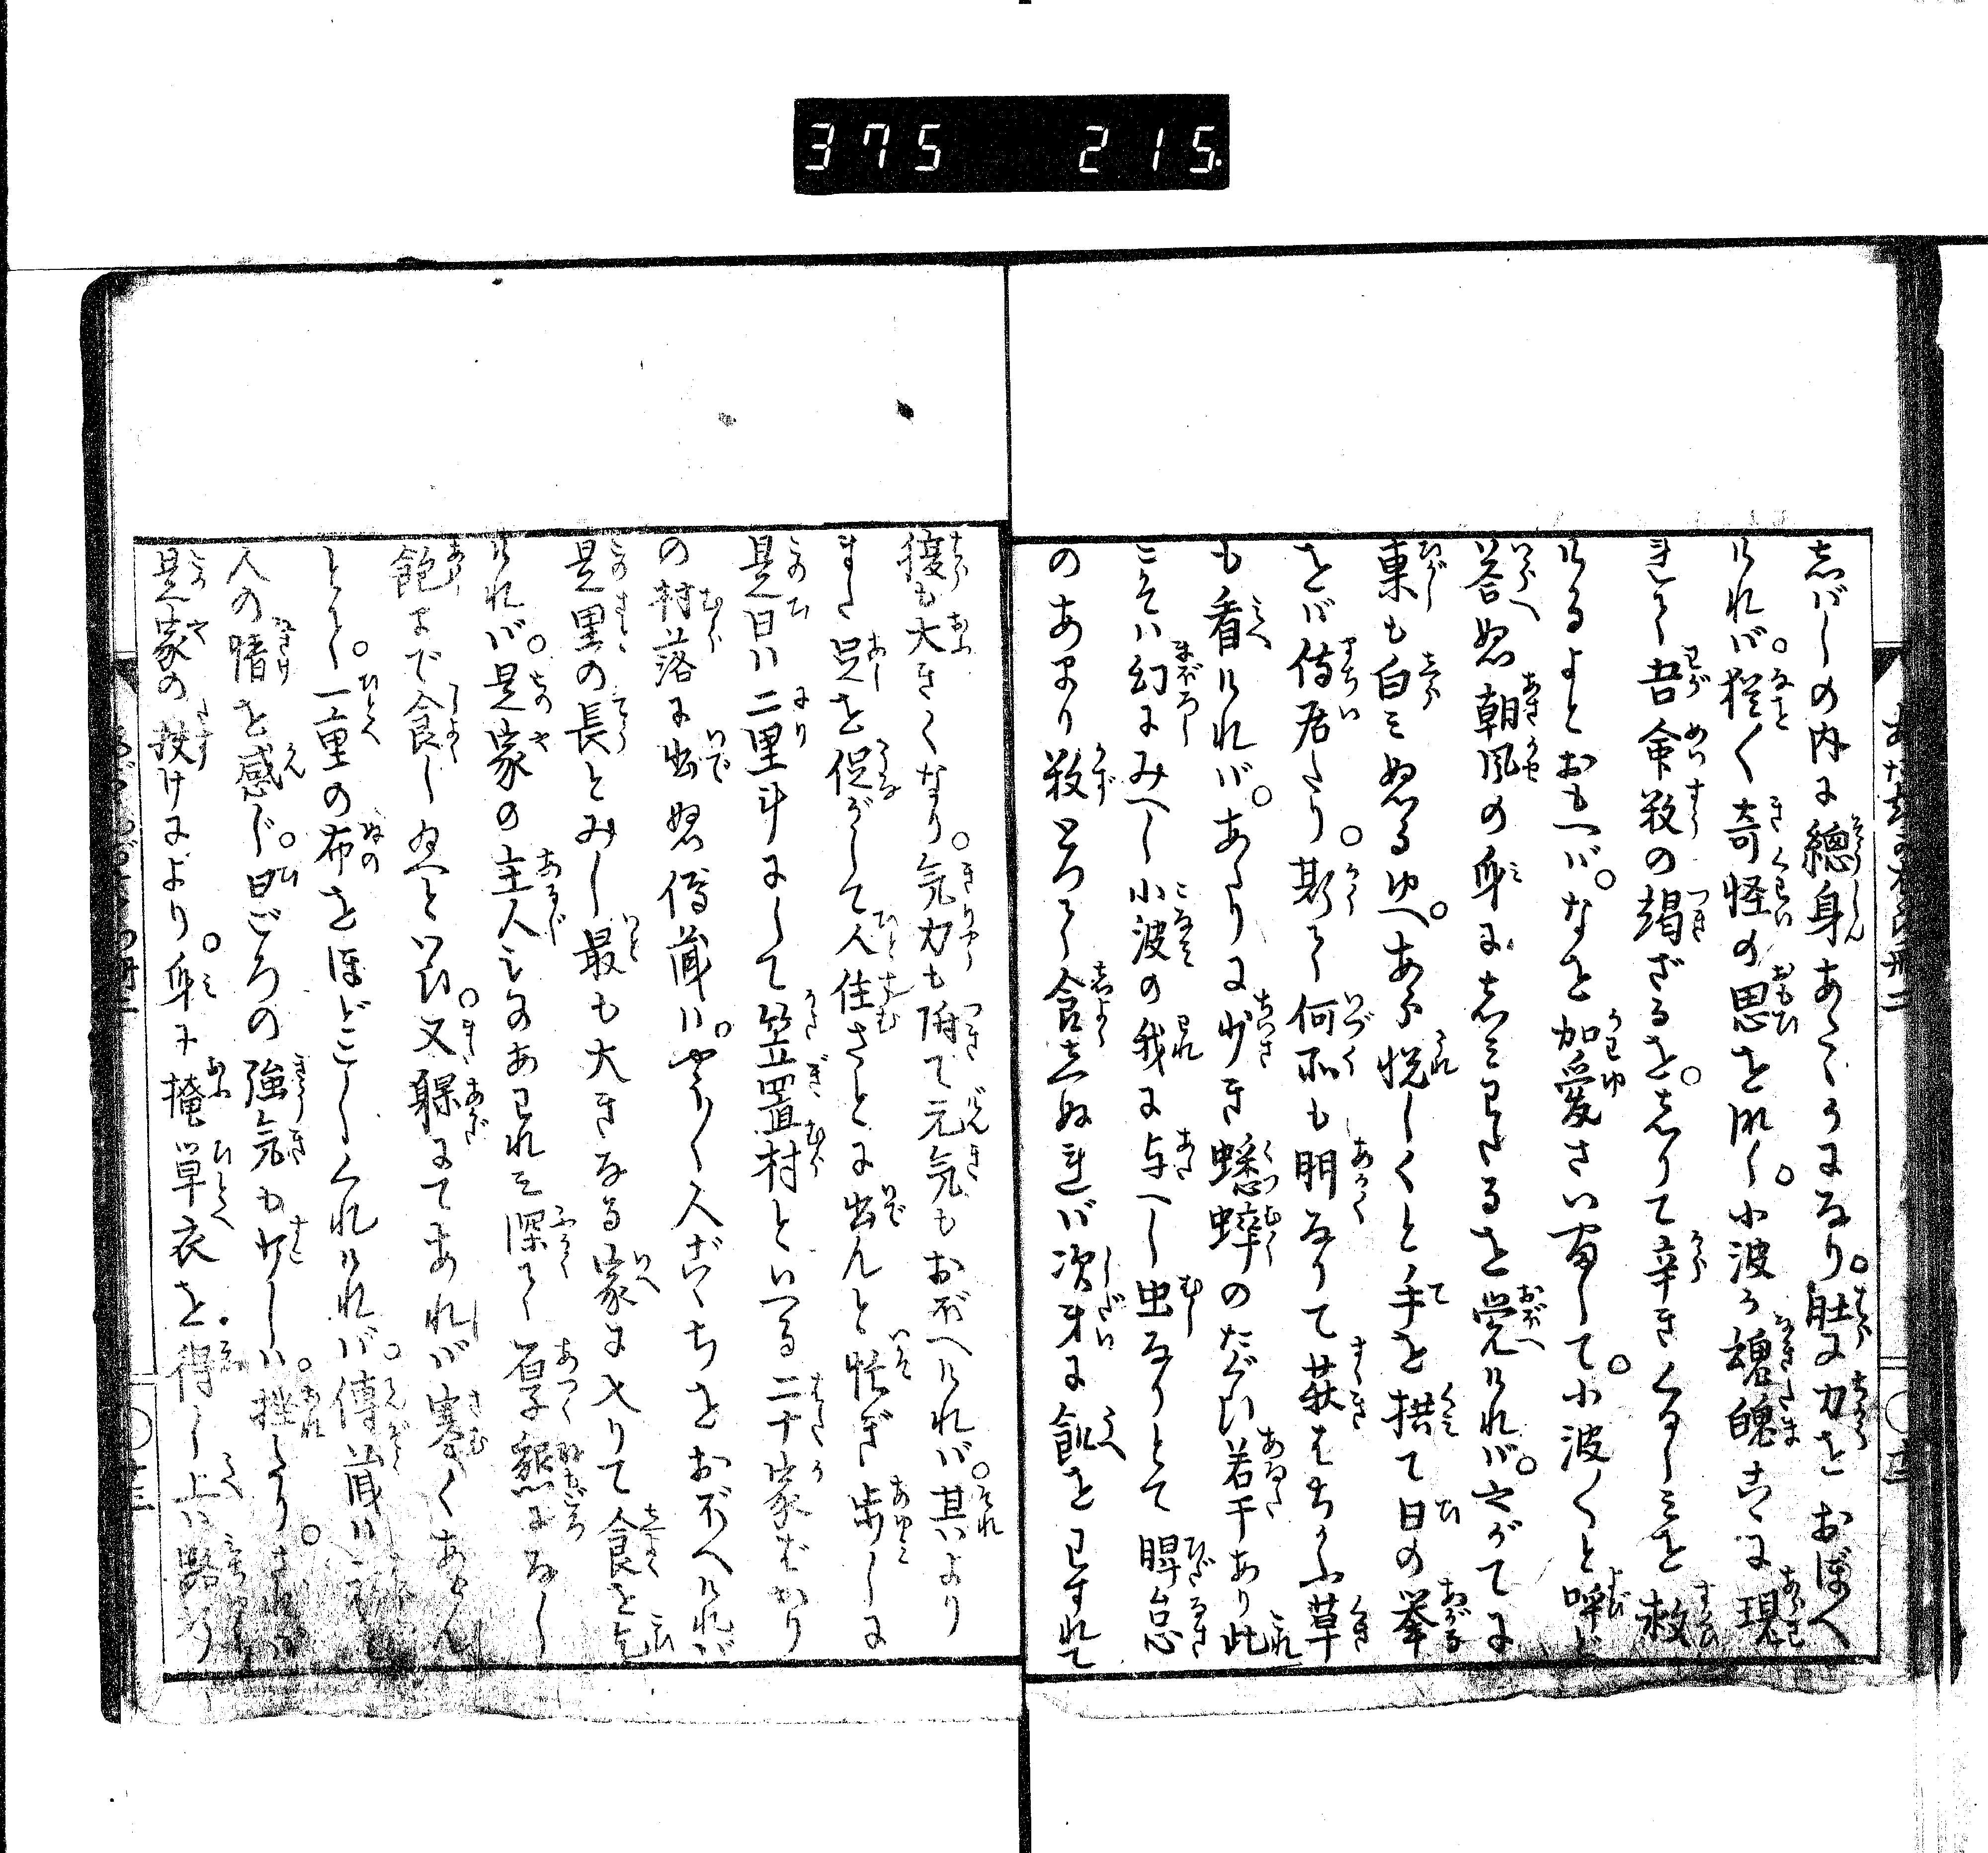 375 215
志バしの内に總身あたゝかになり。肚に力をおぼへ
けれバ。猶々奇怪の思を成し。小波が魂魄こゝに現
来て吾命数の竭ざるを。志りて辛きくるしみを救
けるよとおもへバ。なを加愛さいやまして。小波〳〵と呼ど
答ぬ朝風の身に志ミわたるを覚けれバ。やがてに
東も白ミぬるゆへ。あら悦しくと手を拱て日の挙
をバ待居たり。斯て何所も明なりて萩はちらふ草
も看けれバ。あたりに少き蟋蟀のたぐひ若干あり此
こそハ幻にみへし小波の我に与へし虫なりとて睥怠
のあまり数とりて食志ぬれバ次才に飢をわすれて
腹も大きくなり。気力も附て元気もおぼへけれバ。其より
また足を促がして人住さとに出んと怅ぎ歩しに
是日ハ二里斗にして笠置村といへる二十家ばかり
の村落に出ぬ傳蔵ハ。やう〳〵人ごゝちをおぼへけれバ
是里の長とみし最も大きなる家に入りて食を乞
けれバ。是家の主人いたのあわれミ深て厚懇になし
飽まで食しぬといひ。又躶にてあれバ寒くあらん
とて。一重の布をほどこしくれけれバ。傳蔵ハ
人の情を感じ。日ごろの強気も少しハ挫たり。
是家の扶けにより。身に掩単衣を得し上ハ路